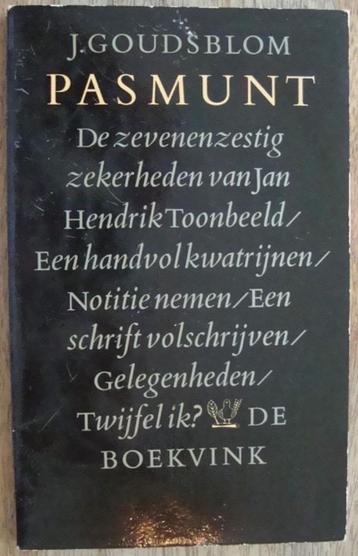 J.GOUDSBLOM
PASMUNT
De zevenenzestig
zekerheden van Jan
Hendrik Toonbeeld/
Een handvol kwatrijnen/
Notitie nemen/Een
schrift volschrijven/
Gelegenheden/
Twijfel ik? DE
BOEKVINK